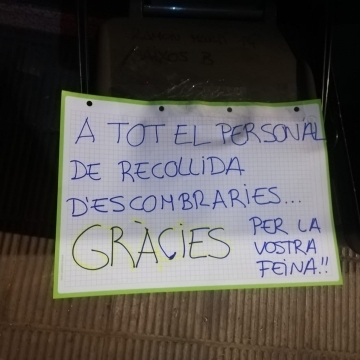 A TOT EL PERSONAL
DE RECOLLIDA
D'ESCOMBRARIES...
GRÀCIES
PER LA
VOSTRA
FEINA!!